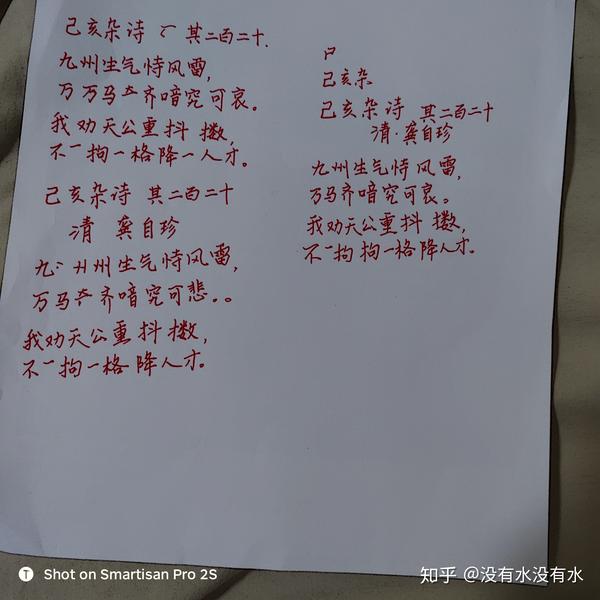 己亥杂诗 其二百二十.
九州生气恃风雷,
万万马齐喑究可哀。
我劝天公重抖擞,
不一拘一格降一人才.
己亥杂诗 其二百二十
清 龚自珍
九州生气恃风雷,
万马齐喑究可悲。。
我劝天公重抖擞,
不一拘一格降人才.
己亥杂
己亥杂诗 其二百二十
清·龚自珍
九州生气恃风雷,
万马齐喑究可哀。
我劝天公重抖擞,
不一拘拘一格降人才.
Shot on Smartisan Pro 2S
知乎 @没有水没有水